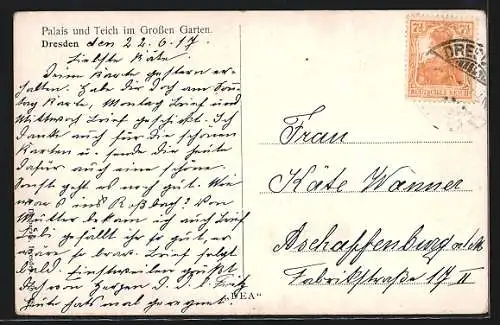 Palais und Teich im Großen Garten.
Dresden den 22.6.17.
Liebste Käte.
Deine Karte gestern er-
halten. Habe dir doch am Sonn
tag Karte, Montag Brief und
Mittwoch Brief geschickt. Ich
danke auch für die schönen
Karten u. sende dir heute
dafür auch eine schöne.
Sonst geht es noch gut. Wie
war's ins Roßbach? Von
Mutter bekam ich auch Brief
gefällt ihr so gut, er
wäre so brav. Brief folgt
bald. Einstweilen grüßt
dich von Herzen d. l. Fritz
Heute hat's mal geregnet.
"PEA"
7½ 7½
DEUTSCHES REICH
DRES
Frau
Käte Wanner
Aschaffenburg a. M.
Fabrikstraße 17 II